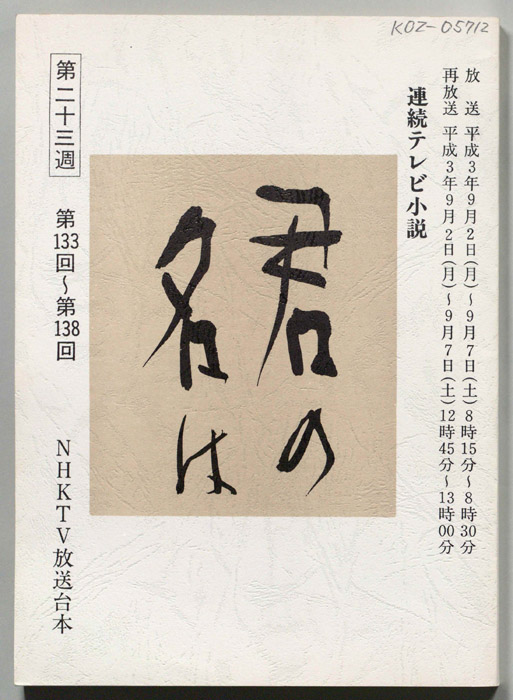 KOZ-05712
放　送　平成3年9月2日(月)〜9月7日(土)8時15分〜8時30分
再放送　平成3年9月2日(月)〜9月7日(土)12時45分〜13時00分
連続テレビ小説
君の
名は
第二十三週
第133回〜第138回
NHKTV放送台本